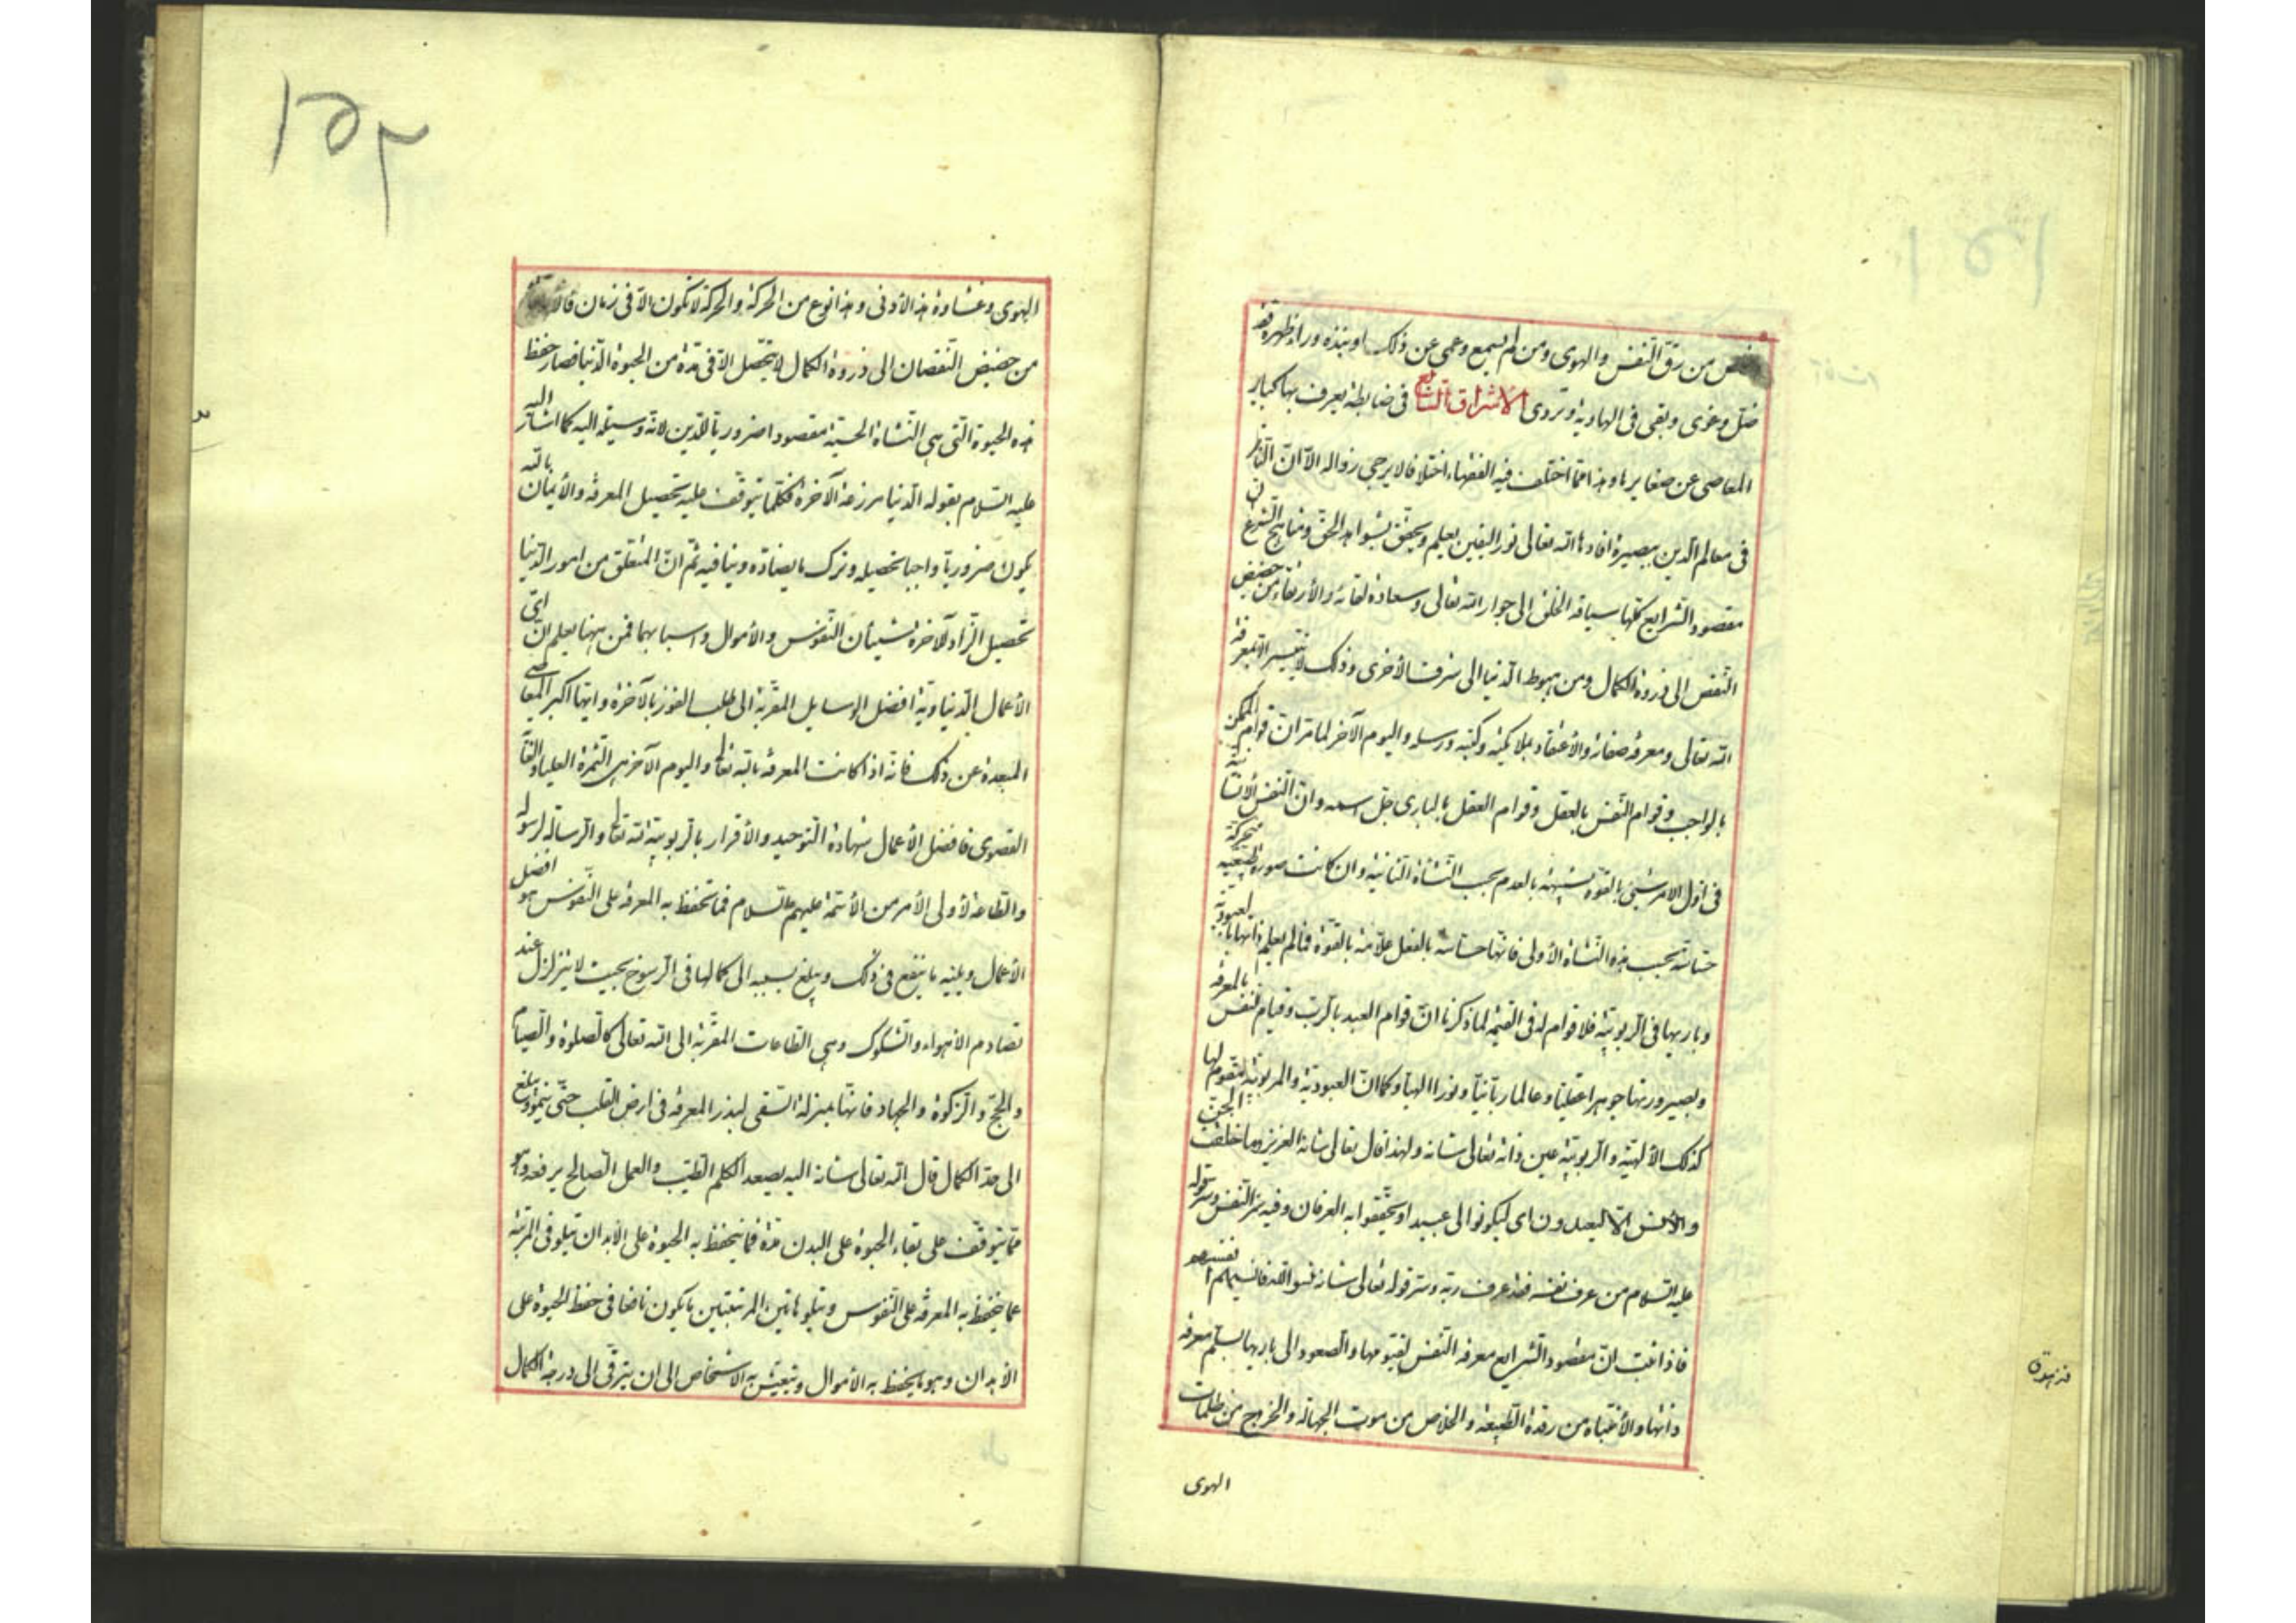 من رق النفس والهوى ومن لم يسمع وعمى عن ذلك او نبذه وراء ظهره فقد
ضل وغوى وبقى فى الهاوية وتردى الاشراق السابع فى ضابطة يعرف بها كبار
المعاصى عن صغايرها وهذا مما اختلف فيه الفقهاء اختلافا لا يرجى زواله الا ان الناظر
فى معالم الدين ببصيرة افادها الله تعالى نور اليقين يعلم ويحقق بشواهد الحق ومناهج الشرع ان
مقصود الشرايع كلها سياقة الخلق الى جوار الله تعالى وسعادة لقائه والارتقاء من حضيض
النقص الى ذروة الكمال ومن هبوط الدنيا الى شرف الأخرى وذلك لا يتيسر الا بمعرفة
الله تعالى ومعرفة صفاته والأعتقاد بملائكته وكتبه ورسله واليوم الآخر لما مر ان قوام الممكن
بالواجب وقوام النفس بالعقل وقوام العقل بالبارى جل اسمه وان النفس الأنسانية
فى اول الامر شىء بالقوة شبيهة بالعدم بحسب النشاة الثانية وان كانت صورة طبيعية متحركة
حساسة بحسب هذه النشاة الأولى فانها حساسة بالفعل علامة بالقوة فما لم يعلم ذاتها بالعبودية
وباريها فى الربوبية فلا قوام له فى القيمة لما ذكرنا ان قوام العبد بالرب وقيام النفس بالمعرفة
وبصيرورتها جوهرا عقليا وعالما ربانيا ونورا الهيا وكما ان العبودية والمربوبية لتقوم لها
كذلك الألهية والربوبية عين ذاته تعالى شانه ولهذا قال تعالى شانه العزيز وما خلقت الجن
والأنس الا ليعبدون اى ليكونوا لى عبيدا ويتحققوا به العرفان وفيه سر النفس وسر قوله
عليه السلام من عرف نفسه فقد عرف ربه وسر قوله تعالى شانه نسوا الله فانسيهم انفسهم
فاذا ثبت ان مقصود الشرايع معرفة النفس لقيومها والصعود الى باريها بسلم معرفة
ذاتها والأنتباه من رقدة الطبيعة والخلاص من موت الجهالة والخروج من ظلمات
الهوى
١٥٢
الهوى وغشاوة هذا الأدنى وهذا نوع من الحركة والحركة لا تكون الا فى زمان
من حضيض النقصان الى ذروة الكمال لا يتحصل الا فى مدة من الحيوة الدنيا فصار حفظ
هذه الحيوة التى هى النشاة الحسية مقصودا ضروريا للدين لانه وسيلة اليه كما اشار اليه
عليه السلام بقوله الدنيا مزرعة الآخرة فكلما يتوقف عليه تحصيل المعرفة والأيمان بالله
يكون ضروريا واجبا تحصيله وترك ما يضاده وينافيه ثم ان المتعلق من امور الدنيا
تحصيل الزاد للآخرة شيئان النفوس والأموال واسبابهما فمن ههنا يعلم ان اى
الأعمال الدنياوية افضل الوسايل المقربة الى طلب الفوز بالآخرة وايتها اكبر المعاصى
المبعدة عن ذلك فانه اذا كانت المعرفة بالله تعالى واليوم الآخر هى الثمرة العليا والغاية
القصوى فافضل الأعمال شهادة التوحيد والأقرار بالربوبية لله تعالى والرسالة لرسوله
والطاعة لأولى الأمر من الأئمة عليهم السلام فما تحفظ به المعرفة على النفوس هو افضل
الأعمال ويليه ما ينفع فى ذلك ويبلغ بسببه الى كمالها فى الرسوخ بحيث لا يتزلزل عند
تصادم الأهواء والشكوك وهى الطاعات المقربة الى الله تعالى كالصلوة والصيام
والحج والزكوة والجهاد فانها بمنزلة السقى لبذر المعرفة فى ارض القلب حتى ينمو ويبلغ
الى حد الكمال قال الله تعالى شانه اليه يصعد الكلم الطيب والعمل الصالح يرفعه وهو
مما يتوقف على بقاء الحيوة على البدن مدة فما يتحفظ به الحيوة على الأبدان يتلو فى المرتبة
عما ينحفظ به المعرفة على النفوس ويتلو هاتين المرتبتين ما يكون نافعا فى حفظ الحيوة على
الأبدان وهو ما ينحفظ به الأموال ويتعيش به الاشخاص الى ان يترقى الى درجة الكمال